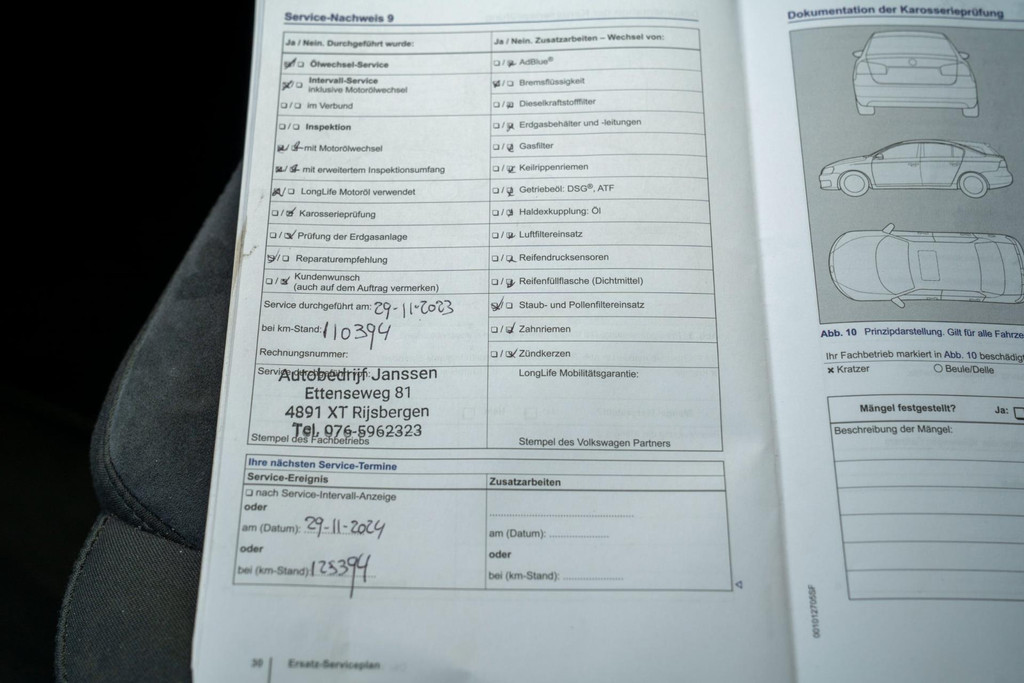 Service-Nachweis 9
Ja / Nein. Durchgeführt wurde:
Ölwechsel-Service
Intervall-Service
inklusive Motorölwechsel
im Verbund
Inspektion
mit Motorölwechsel
mit erweitertem Inspektionsumfang
LongLife Motoröl verwendet
Karosserieprüfung
Prüfung der Erdgasanlage
Reparaturempfehlung
Kundenwunsch
(auch auf dem Auftrag vermerken)
Service durchgeführt am: 29-11-2023
bei km-Stand: 110394
Rechnungsnummer:
Autobedrijf Janssen
Ettenseweg 81
4891 XT Rijsbergen
Tel. 076-5962323
Stempel des Fachbetriebs
Ja / Nein. Zusatzarbeiten – Wechsel von:
AdBlue®
Bremsflüssigkeit
Dieselkraftstofffilter
Erdgasbehälter und -leitungen
Gasfilter
Keilrippenriemen
Getriebeöl: DSG®, ATF
Haldexkupplung: Öl
Luftfiltereinsatz
Reifendrucksensoren
Reifenfüllflasche (Dichtmittel)
Staub- und Pollenfiltereinsatz
Zahnriemen
Zündkerzen
LongLife Mobilitätsgarantie:
Stempel des Volkswagen Partners
Ihre nächsten Service-Termine
Service-Ereignis
nach Service-Intervall-Anzeige
oder
am (Datum): 29-11-2024
oder
bei (km-Stand) 125394
Zusatzarbeiten
am (Datum):
oder
bei (km-Stand):
30 Ersatz-Serviceplan
Dokumentation der Karosserieprüfung
Abb. 10 Prinzipdarstellung. Gilt für alle Fahrze
Ihr Fachbetrieb markiert in Abb. 10 beschädig
× Kratzer
Beule/Delle
Mängel festgestellt? Ja:
Beschreibung der Mängel: